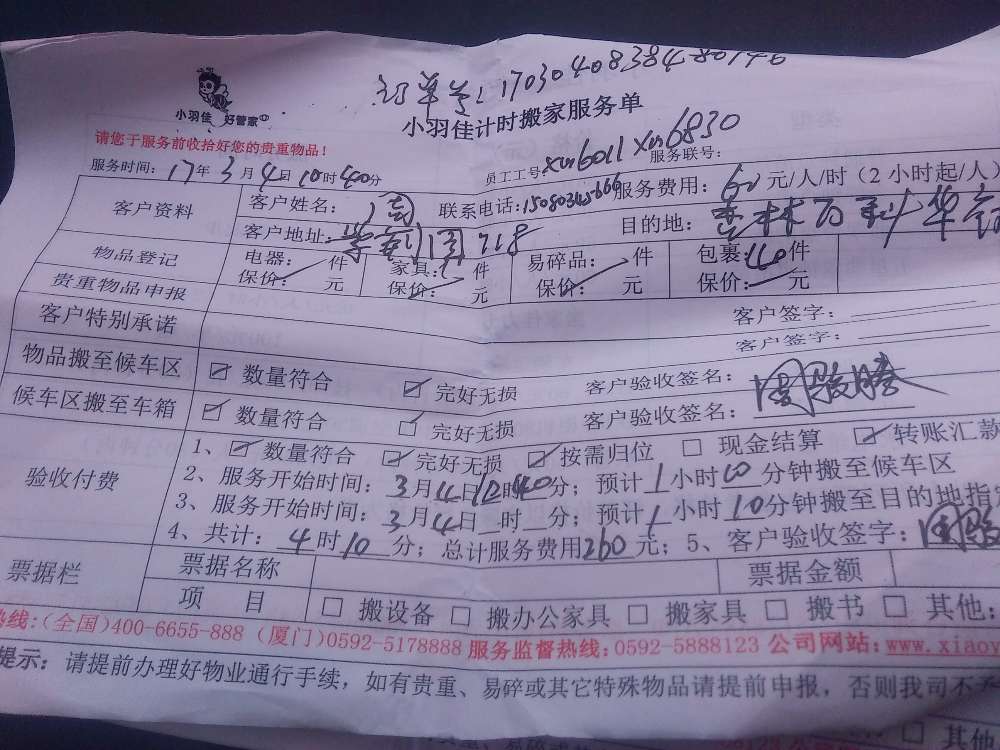 订单号:17030408384480146
小羽佳 好管家
小羽佳计时搬家服务单
请您于服务前收拾好您的贵重物品!
服务时间: 17年 3月 4日 10时 40分
员工工号 xm6011 xm6830 服务联号:
客户资料 客户姓名: 联系电话: 15080345666 服务费用: 60 元/人/时 (2小时起/人)
客户地址: 718 目的地:
物品登记 电器: 件 家具: 件 易碎品: 件 包裹: 110件
贵重物品申报 保价: 元 保价: 元 保价: 元 保价: 元
客户特别承诺 客户签字:
客户签字:
物品搬至候车区 数量符合 完好无损 客户验收签名:
候车区搬至车箱 数量符合 完好无损 客户验收签名: 周骏腾
验收付费 1、 数量符合 完好无损 按需归位 现金结算 转账汇款
2、服务开始时间: 3月4日10时40分; 预计 1小时 10分钟搬至候车区
3、服务开始时间: 3月4日 时 分; 预计 1小时 10分钟搬至目的地指
4、共计: 4时10分; 总计服务费用260元; 5、客户验收签字: 周骏
票据栏 票据名称 票据金额
项 目 搬设备 搬办公家具 搬家具 搬书 其他:
热线:(全国)400-6655-888 (厦门)0592-5178888 服务监督热线:0592-5888123 公司网站:www.xiaoy
提示: 请提前办理好物业通行手续,如有贵重、易碎或其它特殊物品请提前申报,否则我司不予
其他